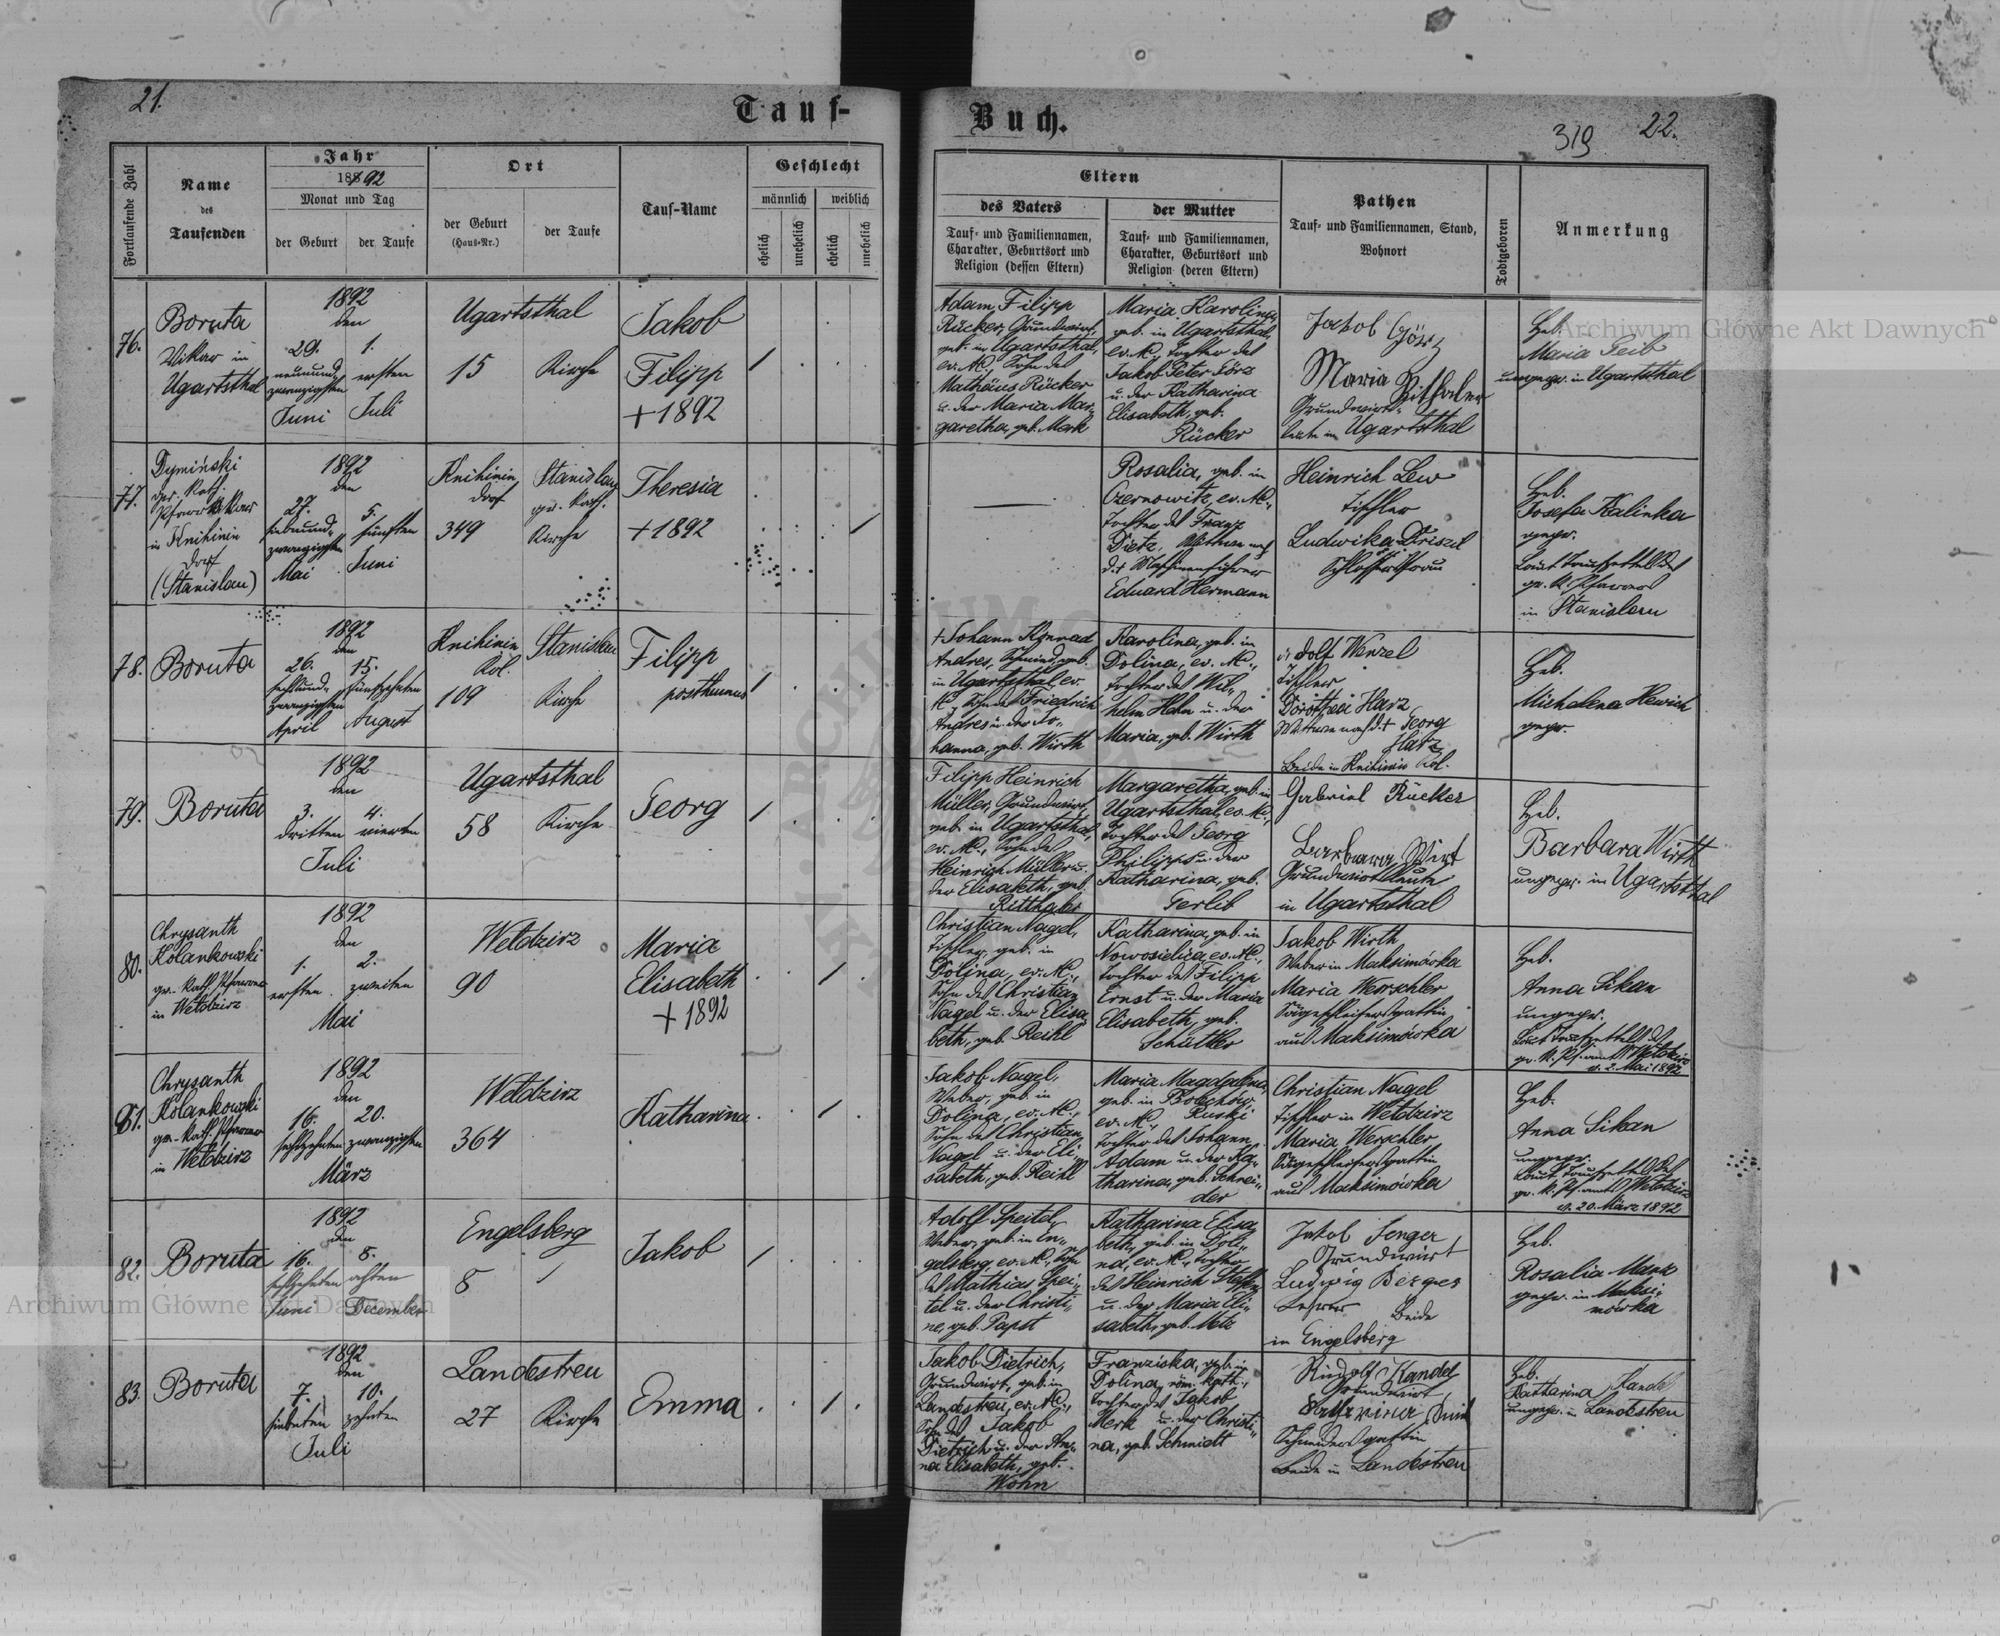 21.
Tauf-
Buch.
319
22.
Fortlaufende Zahl
Name
des
Taufenden
Jahr
1892
Monat und Tag
der Geburt
der Taufe
Ort
der Geburt
(Haus-Nr.)
der Taufe
Tauf-Name
Geschlecht
männlich
weiblich
ehelich
unehelich
ehelich
unehelich
Eltern
des Vaters
Tauf- und Familiennamen,
Charakter, Geburtsort und
Religion (dessen Eltern)
der Mutter
Tauf- und Familiennamen,
Charakter, Geburtsort und
Religion (deren Eltern)
Pathen
Tauf- und Familiennamen, Stand,
Wohnort
Todtgeboren
Anmerkung
76.
Boruta
Vikar in
Ugartsthal
1892
den
29. 1.
neunund- ersten
zwanzigsten
Juni Juli
Ugartsthal
15 Kirche
Jakob
Filipp
+ 1892
Adam Filipp
Rücker, Grundwirt,
geb. in Ugartsthal,
ev. K., Sohn des
Mathäus Rücker
u. der Maria Mar-
garetha, geb. Merk
Maria Karolina,
geb. in Ugartsthal,
ev. K., Tochter des
Jakob Peter Görz
u. der Katharina
Elisabeth, geb.
Rücker
Jakob Görz
Maria Ritthaler
Grundwirts-
leute in Ugartsthal
Heb.
Maria Geib
ungepr. in Ugartsthal
77.
Dymiński
Pfarrvikar
in Knihinin
Dorf
(Stanislau)
1892
den
27. 5.
siebenund- fünften
zwanzigsten
Mai Juni
Knihinin
Dorf
349
Stanislau
gr. kath.
Kirche
Theresia
+ 1892
Rosalia, geb. in
Czernowitz, ev. K.,
Tochter des Franz
Dietz, Witwe nach
d. + Maschinenführer
Eduard Hermann
Heinrich Lew
Tischler
Ludwika Driszel
Schlossersfrau
Heb.
Josefa Kalinka
gepr.
Laut Taufzettel des
gr. k. Pfarrers
in Stanislau
78.
Boruta
1892
den
26. 15.
sechsund- fünfzehnten
zwanzigsten
April August
Knihinin
Kol.
109
Stanislau
Kirche
Filipp
posthumus
+ Johann Konrad
Andres, Schmied, geb.
in Ugartsthal, ev.
K., Sohn des Friedrich
Andres u. der Jo-
hanna, geb. Wirth
Karolina, geb. in
Dolina, ev. K.,
Tochter des Wil-
helm Hahn u. der
Maria, geb. Wirth
Adolf Wenzel
Tischler
Dorothei Harz
Witwe nach d. + Georg
Harz
Beide in Knihinin Kol.
Heb.
Michalena Hewich
gepr.
79.
Boruta
1892
den
3. 4.
dritten vierten
Juli
Ugartsthal
58 Kirche
Georg
Filipp Heinrich
Müller, Grundwirt,
geb. in Ugartsthal,
ev. K., Sohn des
Heinrich Müller u.
der Elisabeth, geb.
Ritthaler
Margaretha, geb. in
Ugartsthal, ev. K.,
Tochter des Georg
Philipps u. der
Katharina, geb.
Gerlib
Gabriel Rücker
Barbara Wirt
Grundwirtsleute
in Ugartsthal
Heb.
Barbara Wirth
ungepr. in Ugartsthal
80.
Chrysanth
Kolankowski
gr. kath. Pfarrer
in Weldzirz
1892
den
1. 2.
ersten zweiten
Mai
Weldzirz
90
Maria
Elisabeth
+ 1892
Christian Nagel,
Tischler, geb. in
Dolina, ev. K.,
Sohn des Christian
Nagel u. der Elisa-
beth, geb. Reihl
Katharina, geb. in
Nowosielica, ev. K.,
Tochter des Filipp
Ernst u. der Maria
Elisabeth, geb.
Schüttler
Jakob Wirth
Weber in Maksimówka
Maria Werschler
Sägeschleifersgattin
aus Maksimówka
Heb.
Anna Sikan
ungepr.
Laut Taufzettel des
gr. k. Pf.amts Weldzirz
v. 2. Mai 1892
81.
Chrysanth
Kolankowski
gr. kath. Pfarrer
in Weldzirz
1892
den
16. 20.
sechzehnten zwanzigsten
März
Weldzirz
364
Katharina
Jakob Nagel,
Weber, geb. in
Dolina, ev. K.,
Sohn des Christian
Nagel u. der Eli-
sabeth, geb. Reihl
Maria Magdalena,
geb. in Bolechów
ev. K., Ruski
Tochter des Johann
Adam u. der Ka-
tharina, geb. Schnei-
der
Christian Nagel
Tischler in Weldzirz
Maria Werschler
Sägeschleifersgattin
aus Maksimówka
Heb.
Anna Sikan
ungepr.
Laut Taufzettel des
gr. k. Pf.amts Weldzirz
v. 20. März 1892
82.
Boruta
1892
den
16. 8.
sechzehnten achten
Juni December
Engelsberg
8
Jakob
Adolf Speitel,
Weber, geb. in En-
gelsberg, ev. K., Sohn
des Mathias Spei-
tel u. der Christi-
ne, geb. Papst
Katharina Elisa-
beth, geb. in Doli-
na, ev. K., Tochter
des Heinrich Steffen
u. der Maria Eli-
sabeth, geb. Metz
Jakob Senger
Grundwirt
Ludwig Berges
Lehrer Beide
in Engelsberg
Heb.
Rosalia Mank
gepr. in Maksi-
mówka
83.
Boruta
1892
den
7. 10.
siebenten zehnten
Juli
Landestreu
27 Kirche
Emma
Jakob Dietrich,
Grundwirt, geb. in
Landestreu, ev. K.,
Sohn des Jakob
Dietrich u. der An-
na Elisabeth, geb.
Wohn
Franziska, geb. in
Dolina, röm. kath.,
Tochter des Jakob
Merk u. der Christi-
na, geb. Schmidt
Rudolf Kandel
Grundwirt
Schneidersgattin
Beide in Landestreu
Heb.
Katharina Kandel
ungepr. in Landestreu
Archiwum Główne Akt Dawnych
Archiwum Główne Akt Dawnych